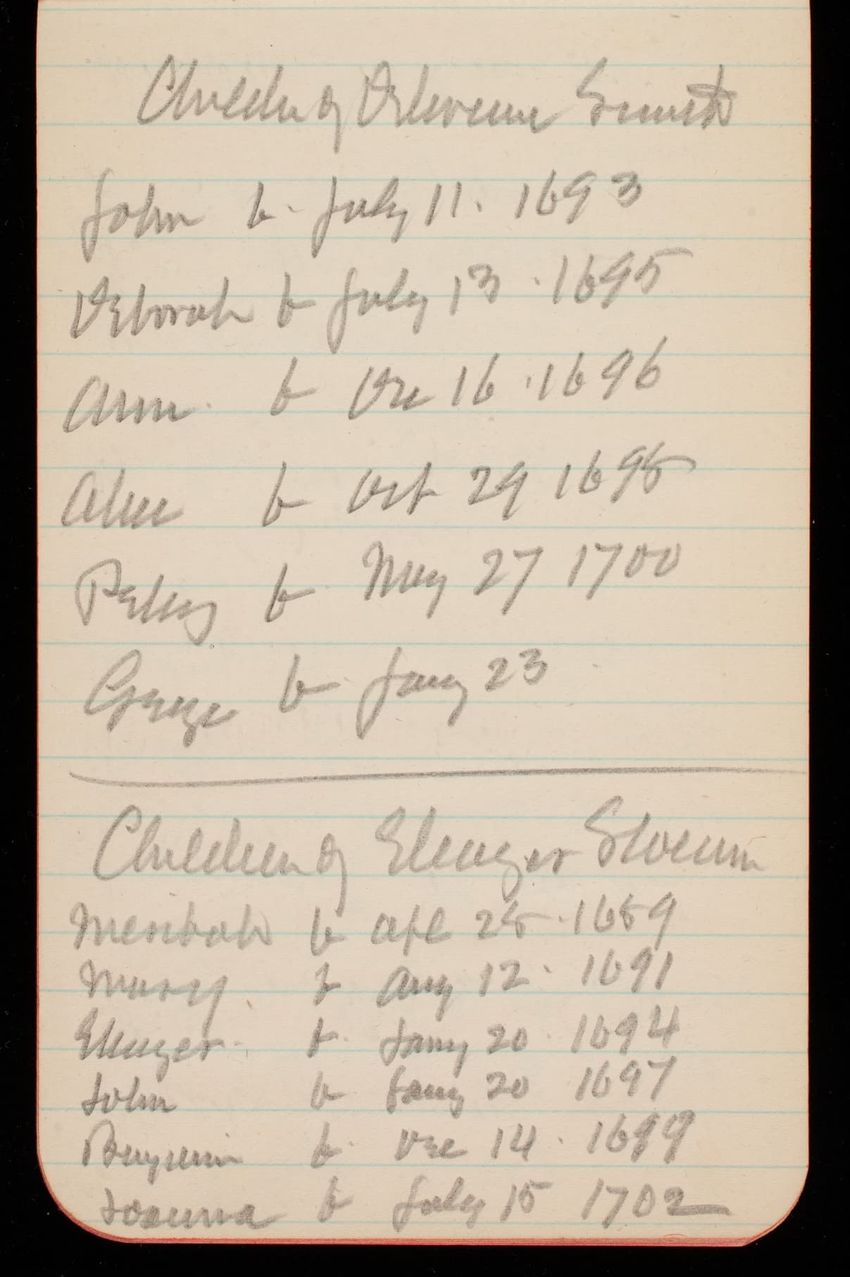 Children of Deliverance Smith
John b. July 11. 1693
Deborah b July 13. 1695
Ann. b Dec 16. 1696
Alice b Oct 29 1698
Peleg b May 27 1700
George b Jany 23
Children of Eleazer Slocum
Meribah b Apl 28. 1689
Mary b Aug 12. 1691
Eleazer b Jany 20. 1694
John b Jany 20 1697
Benjamin b. Dec 14. 1699
Joanna b July 15 1702